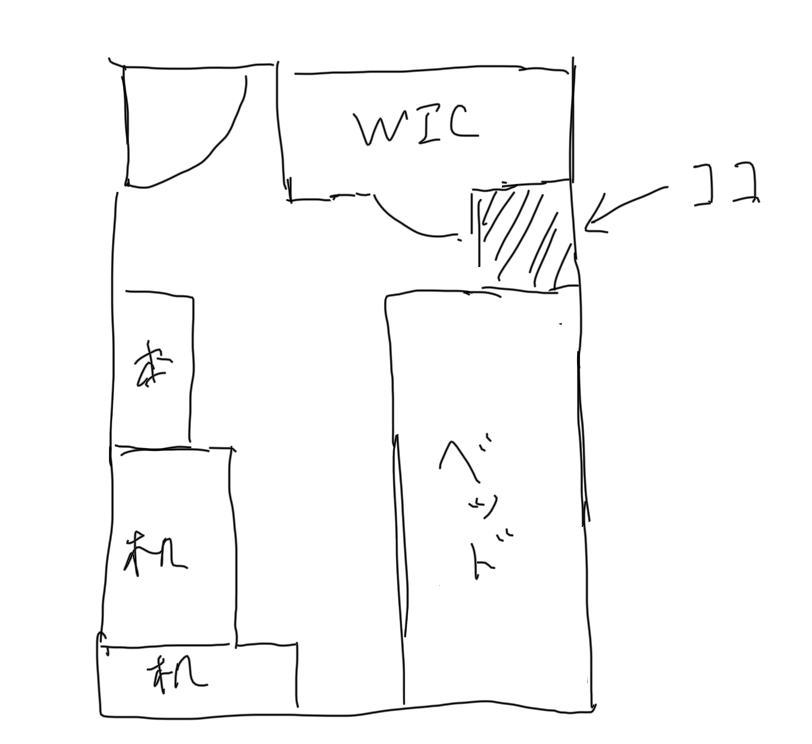 WIC
ココ
本
ベッド
机
机